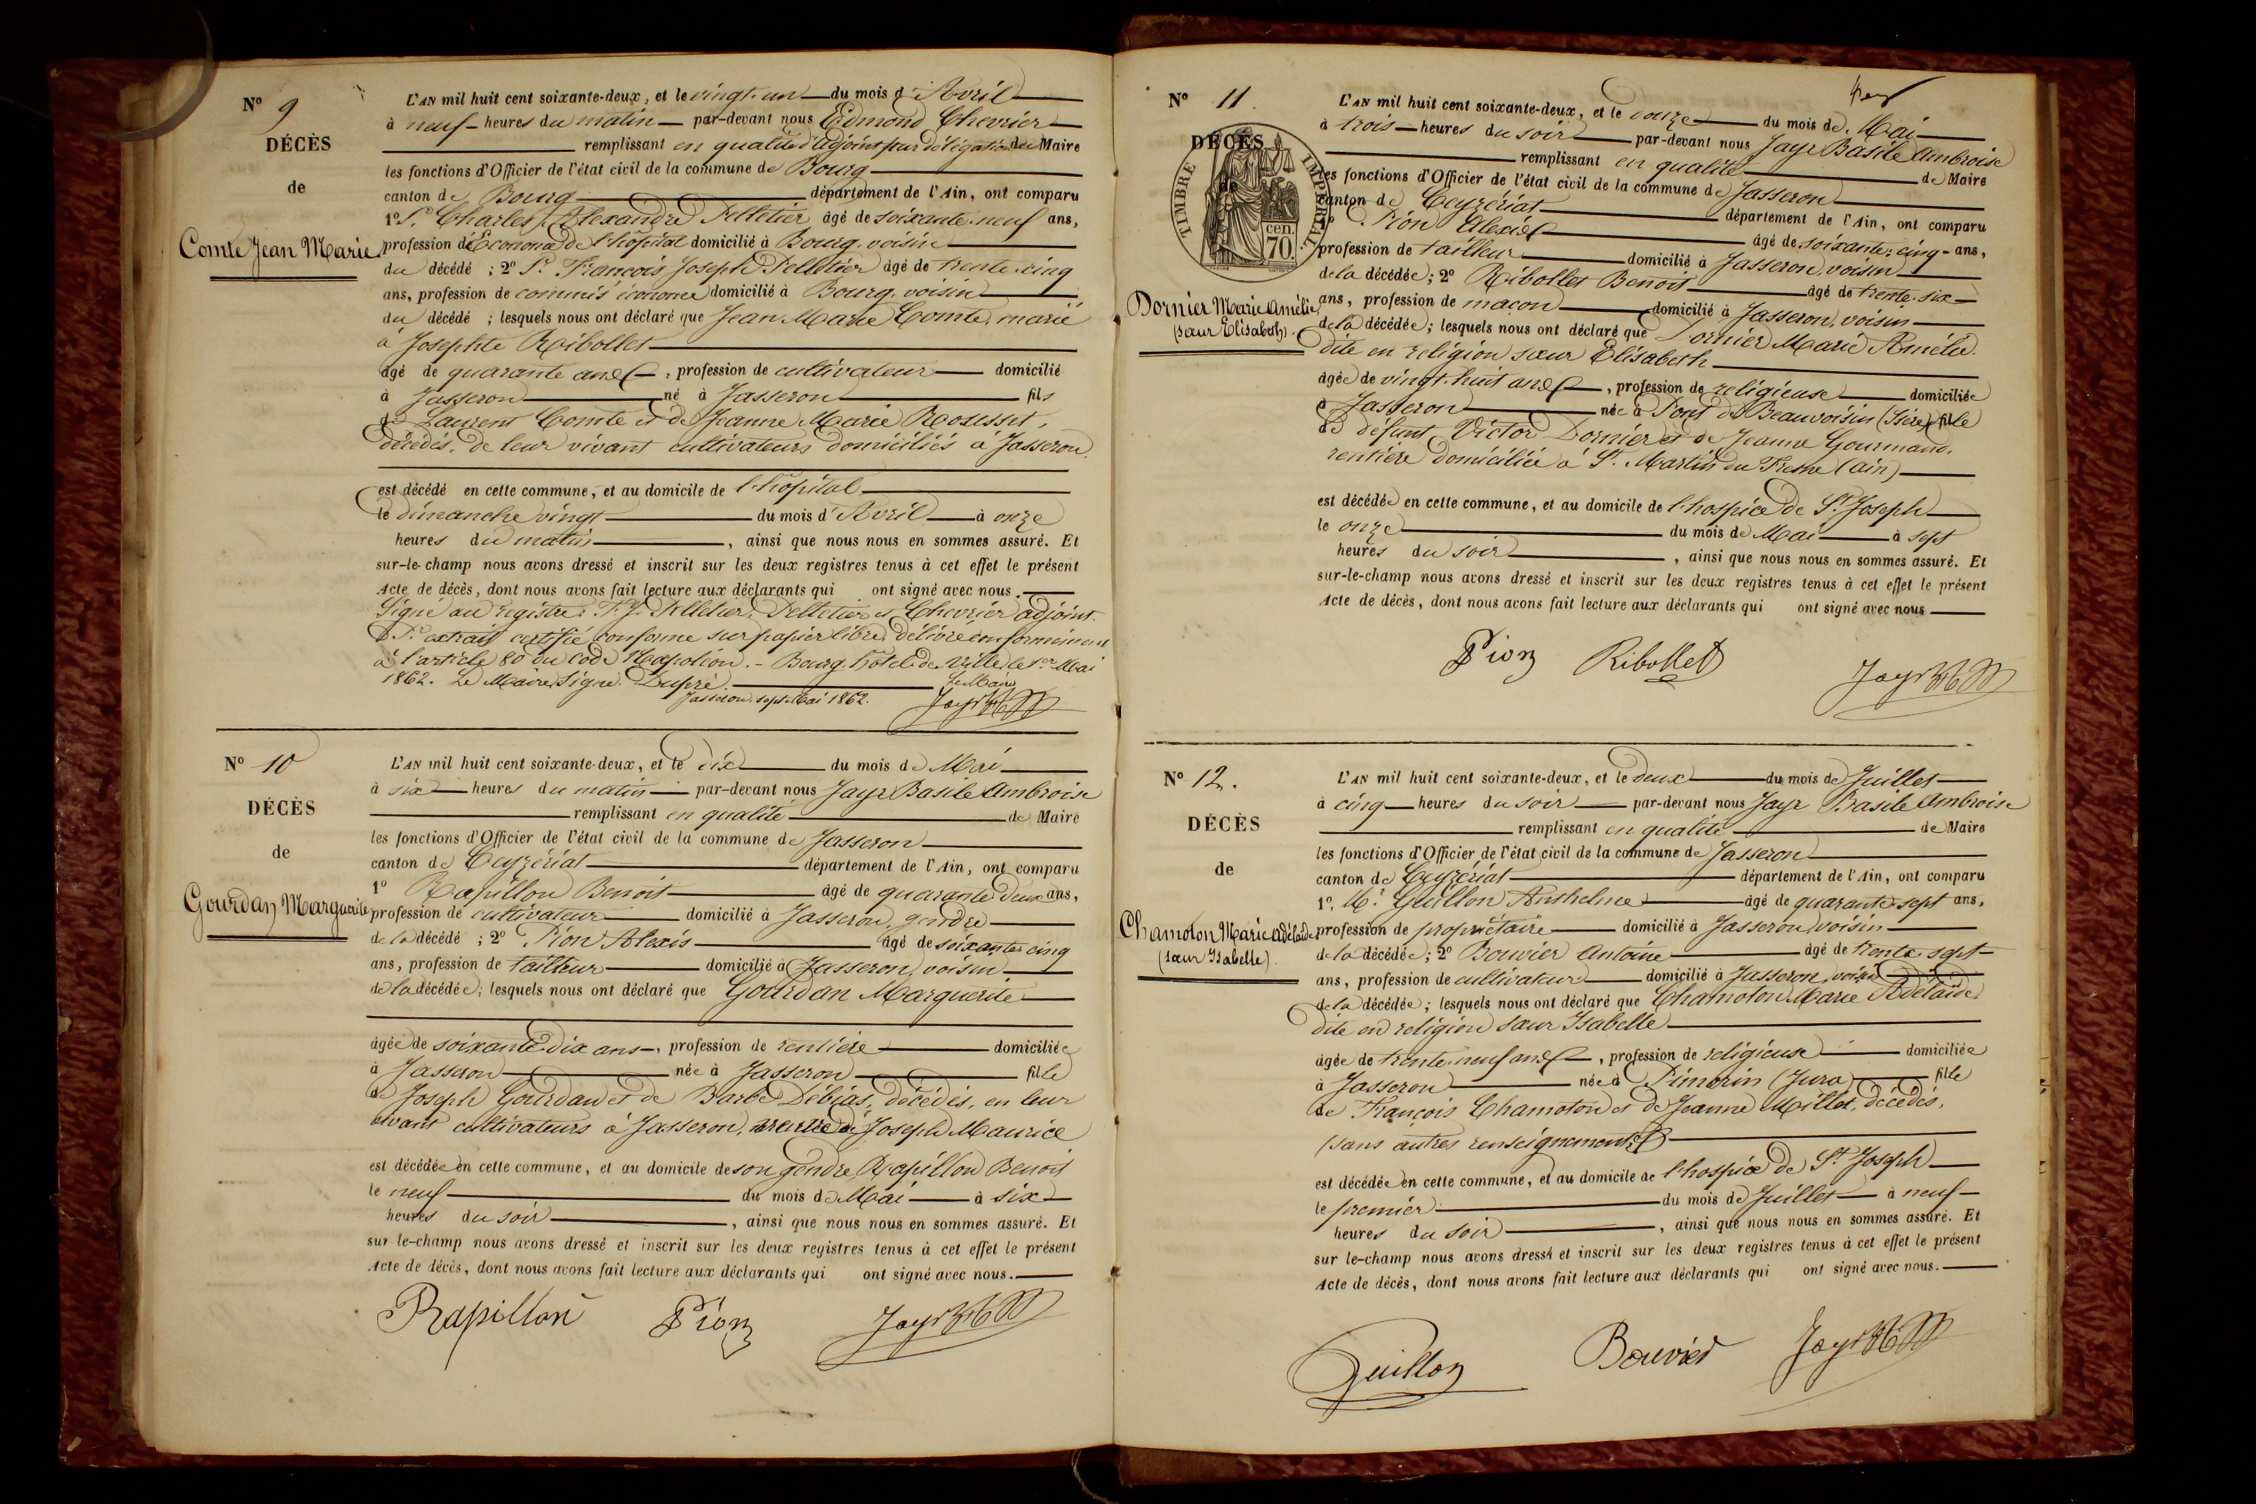 N° 9
DÉCÈS
de
Comte Jean Marie
L'AN mil huit cent soixante-deux, et le vingt-un du mois d'Avril
à neuf heures du matin par-devant nous Edmond Chevrier
remplissant en qualité d'adjoint par délégation du Maire
les fonctions d'Officier de l'état civil de la commune de Bourg
canton de Bourg département de l'Ain, ont comparu
1° Sr. Charles Alexandre Pelletier âgé de soixante-neuf ans,
profession d'Econome de l'hôpital domicilié à Bourg, voisin
du décédé ; 2° Sr. François Joseph Pelletier âgé de trente-cinq
ans, profession de commis économe domicilié à Bourg, voisin
du décédé ; lesquels nous ont déclaré que Jean Marie Comte, marié
à Josephte Ribollet
âgé de quarante ans, profession de cultivateur domicilié
à Jasseron né à Jasseron fils
de Laurent Comte et de Jeanne Marie Rosesset,
décédés, de leur vivant cultivateurs domiciliés à Jasseron.
est décédé en cette commune, et au domicile de l'hôpital
le dimanche vingt du mois d'Avril à onze
heures du matin, ainsi que nous nous en sommes assuré. Et
sur-le-champ nous avons dressé et inscrit sur les deux registres tenus à cet effet le présent
Acte de décès, dont nous avons fait lecture aux déclarants qui ont signé avec nous.
Signé au registre: F. J. Pelletier, Pelletier et Chevrier adjoint.
Pr. extrait certifié conforme sur papier libre, délivré conformément
à l'article 80 du Code Napoléon. - Bourg, hôtel de Ville, le 1er Mai
1862. Le Maire, Signé: Dupré.
Le Maire
Jasseron, sept Mai 1862.
Jayr
N° 10
DÉCÈS
de
Gourdan Marguerite
L'AN mil huit cent soixante-deux, et le dix du mois de Mai
à six heures du matin par-devant nous Jayr Basile Ambroise
remplissant en qualité de Maire
les fonctions d'Officier de l'état civil de la commune de Jasseron
canton de Ceyzériat département de l'Ain, ont comparu
1° Rapillon Benoit âgé de quarante deux ans,
profession de cultivateur domicilié à Jasseron, gendre
de la décédé ; 2° Pion Alexis âgé de soixante cinq
ans, profession de tailleur domicilié à Jasseron, voisin
de la décédée ; lesquels nous ont déclaré que Gourdan Marguerite
âgée de soixante-dix ans, profession de rentière domiciliée
à Jasseron née à Jasseron fille
de Joseph Gourdan et de Barbe Débias, décédés, en leur
vivant cultivateurs à Jasseron, veuve de Joseph Maurice
est décédée en cette commune, et au domicile de son gendre, Rapillon Benoit
le neuf du mois de Mai à six
heures du soir, ainsi que nous nous en sommes assuré. Et
sur le-champ nous avons dressé et inscrit sur les deux registres tenus à cet effet le présent
Acte de décès, dont nous avons fait lecture aux déclarants qui ont signé avec nous.
Rapillon Pion Jayr
N° 11.
DÉCÈS
de
TIMBRE IMPÉRIAL
70 cen.
Dornier Marie Amélie
(sœur Elisabeth).
L'AN mil huit cent soixante-deux, et le onze du mois de Mai
à trois heures du soir par-devant nous Jayr Basile Ambroise
remplissant en qualité de Maire
les fonctions d'Officier de l'état civil de la commune de Jasseron
canton de Ceyzériat département de l'Ain, ont comparu
1° Pion Alexis âgé de soixante-cinq ans,
profession de tailleur domicilié à Jasseron, voisin
de la décédée ; 2° Ribollet Benoit âgé de trente-six
ans, profession de maçon domicilié à Jasseron, voisin
de la décédée ; lesquels nous ont déclaré que Dornier Marie Amélie
dite en religion sœur Elisabeth
âgée de vingt-huit ans, profession de religieuse domiciliée
à Jasseron née à Pont de Beauvoisin (Isère) fille
de défunt Victor Dornier et de Jeanne Gourmand,
rentière domiciliée à St. Martin du Fresne (Ain)
est décédée en cette commune, et au domicile de l'hospice de St. Joseph
le onze du mois de Mai à sept
heures du soir, ainsi que nous nous en sommes assuré. Et
sur-le-champ nous avons dressé et inscrit sur les deux registres tenus à cet effet le présent
Acte de décès, dont nous avons fait lecture aux déclarants qui ont signé avec nous
Pion Ribollet Jayr
N° 12.
DÉCÈS
de
Chamoton Marie Adélaïde
(sœur Isabelle).
L'AN mil huit cent soixante-deux, et le deux du mois de Juillet
à cinq heures du soir par-devant nous Jayr Basile Ambroise
remplissant en qualité de Maire
les fonctions d'Officier de l'état civil de la commune de Jasseron
canton de Ceyzériat département de l'Ain, ont comparu
1°. Mr. Guillon Anthelme âgé de quarante-sept ans,
profession de propriétaire domicilié à Jasseron, voisin
de la décédée ; 2° Bouvier Antoine âgé de trente-sept
ans, profession de cultivateur domicilié à Jasseron, voisin
de la décédée ; lesquels nous ont déclaré que Chamoton Marie Adélaïde,
dite en religion sœur Isabelle
âgée de trente-neuf ans, profession de religieuse domiciliée
à Jasseron née à Pimorin (Jura) fille
de François Chamoton et de Jeanne Millet, décédés,
(sans autres renseignements)
est décédée en cette commune, et au domicile de l'hospice de St. Joseph
le premier du mois de Juillet à neuf
heures du soir, ainsi que nous nous en sommes assuré. Et
sur le-champ nous avons dressé et inscrit sur les deux registres tenus à cet effet le présent
Acte de décès, dont nous avons fait lecture aux déclarants qui ont signé avec nous.
Guillon Bouvier Jayr